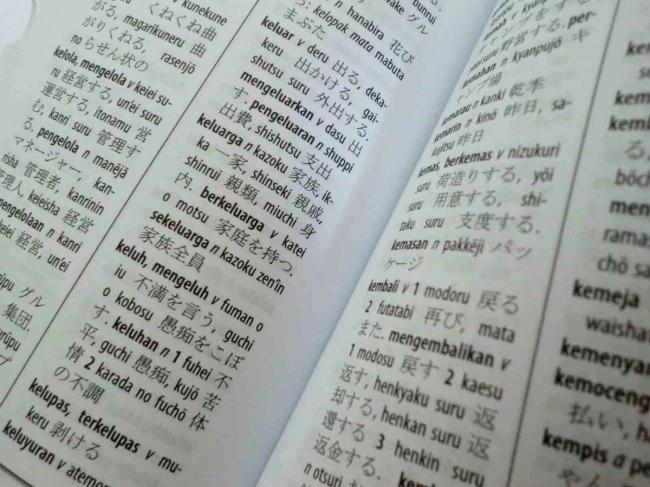 v kunekune
くねくね曲
がる, magarikuneru 曲
がりくねる, rasenjō
no らせん状の
kelola, mengelola v keiei su-
ru 経営する, un'ei suru
運営する, itonamu 営
む, kanri suru 管理す
る. pengelola n manējā
マネージャー, kan-
risha 管理者, kanrinin
管理人, keieisha 経営
pengelolaan n kanri
経営, un'ei
グル
集団,
n hanabira 花び
kelopak mata mabuta
まぶた
keluar v deru 出る, deka-
keru 出かける, gai-
shutsu suru 外出する.
mengeluarkan v dasu 出
す. pengeluaran n shuppi
出費, shishutsu 支出
keluarga n kazoku 家族, ik-
ka 一家, shinseki 親戚,
shinrui 親類, miuchi 身
内, berkeluarga v katei
o motsu 家庭を持つ.
sekeluarga n kazoku zen'in
家族全員
keluh, mengeluh v fuman o
iu 不満を言う, guchi
o kobosu 愚痴をこぼ
す. keluhan n 1 fuhei 不
平, guchi 愚痴, kujō 苦
情 2 karada no fuchō 体
の不調
kelupas, terkelupas v mu-
keru 剥ける
keluyuran v atemo
する. per-
野営する.
kemahan n kyanpujō キ
ャンプ場
kemarau n kanki 乾季
kemarin n kinō 昨日, sa-
kujitsu 昨日
kemas, berkemas v nizukuri
suru 荷造りする, yōi
suru 用意する, shi-
taku suru 支度する.
kemasan n pakkēji パッ
ケージ
kembali v 1 modoru 戻る
2 futatabi 再び, mata
また. mengembalikan v
1 modosu 戻す 2 kaesu
返す, henkyaku suru 返
却する, henkan suru 返
還する 3 henkin suru
返金する.
n otsuri
る,
böch
men
rama
chō sa
kemeja
waisha
kemenyan
kemoceng
払い, h
kempis a pe